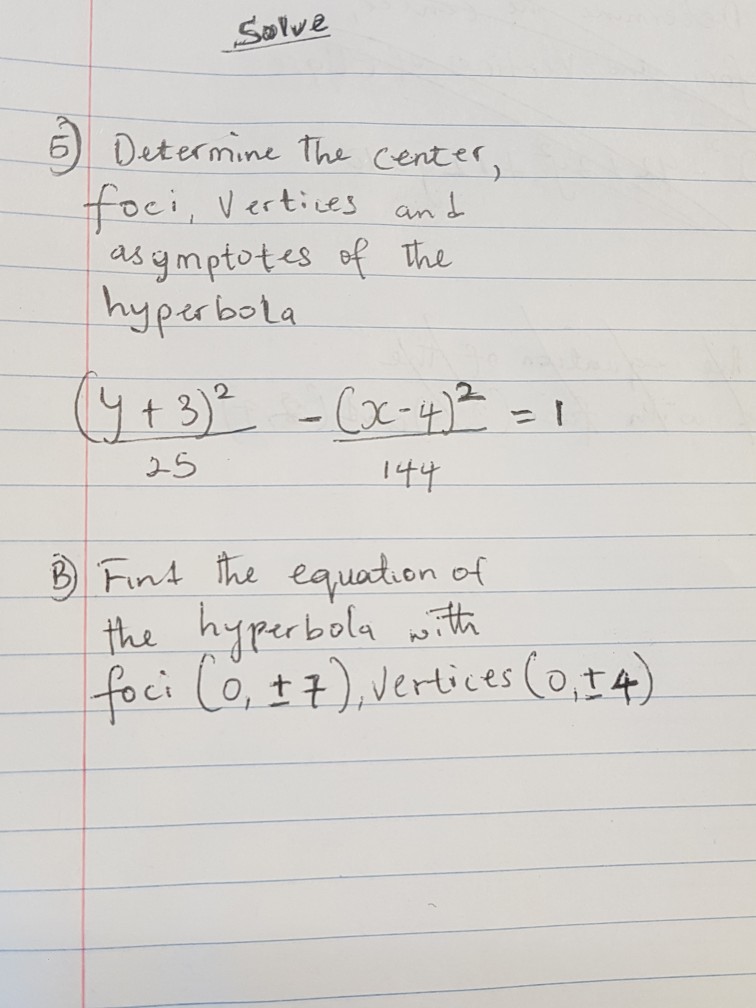 Solve
5) Determine the center,
foci, Vertices and
asymptotes of the
hyperbola
(y + 3)² / 25 - (x - 4)² / 144 = 1
B) Find the equation of
the hyperbola with
foci (0, ±7), Vertices (0, ±4)